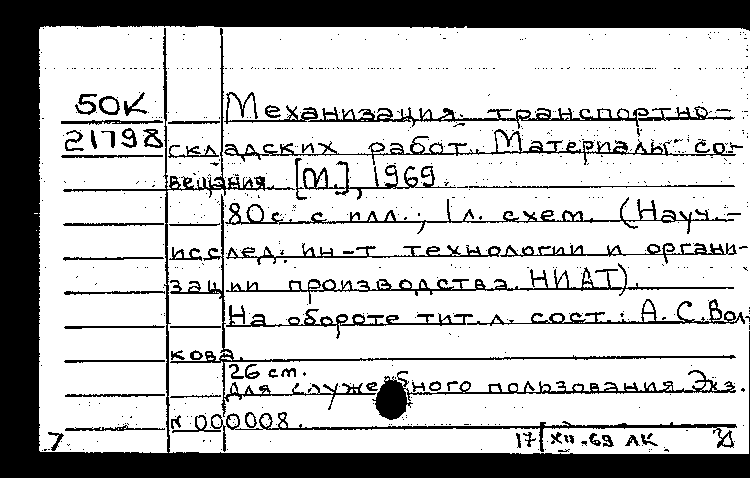 50К
21798
Механизация транспортно-
складских работ. Материалы со-
вещания. [М.], 1969.
80с. с илл.; 1л. схем. (Науч.-
исслед. ин-т технологии и органи-
зации производства. НИАТ).
На обороте тит. л. сост.: А.С.Вол-
кова.
26 см.
Для служебного пользования. Экз.
N 000008.
7
17/XII-69 ЛК